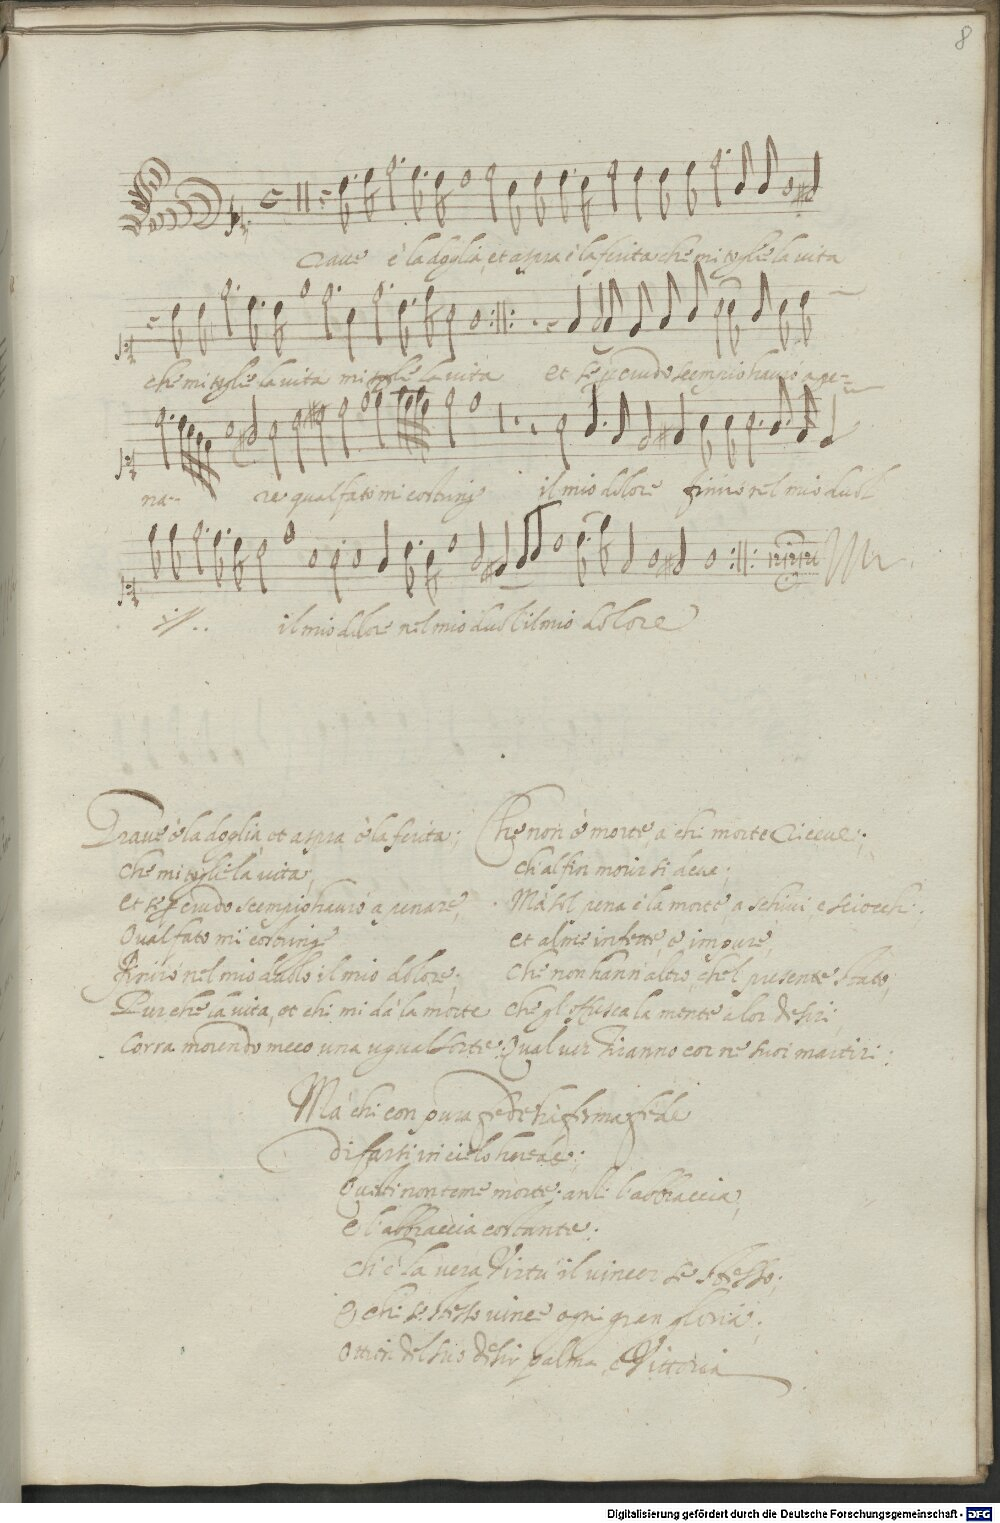 8
Grave è la doglia, et aspra è la ferita che mi toglie la vita
che mi toglie la vita mi toglie la vita et se p crudo scempio havrò a pe-
na-- re qual fato mi costring il mio dolore finirò nel mio duol
ij.. il mio dolore nel mio duol il mio dolore
Grave è la doglia, et aspra è la ferita;
che mi toglie la vita,
et se p crudo scempio havrò a penare,
Qual fato mi costringe
Finirò nel mio duolo il mio dolore;
Pur che la vita, et chi mi dà la morte
Corra morendo meco una ugual sorte.
Che non è morte, a chi morte riceve;
ch'al fin morir si deve;
Ma sol pena è la morte a schivi e sciocchi.
et alme infette, e impure,
che non hann'altro, che'l presente stato,
che gl'offusca la mente a lor desiri
Qual ver Tiranno cor ne suoi martiri:
Ma chi con pura fede hà ferma fede
di farsi in cielo herede;
Questi non teme morte. anzi l'abbraccia,
e l'abbraccia costante:
ch'è la vera Virtù il vincer se stesso;
e chi se stesso vince ogni gran gloria;
ottien del suo desir palma, e Vittoria
Digitalisierung gefördert durch die Deutsche Forschungsgemeinschaft - DFG